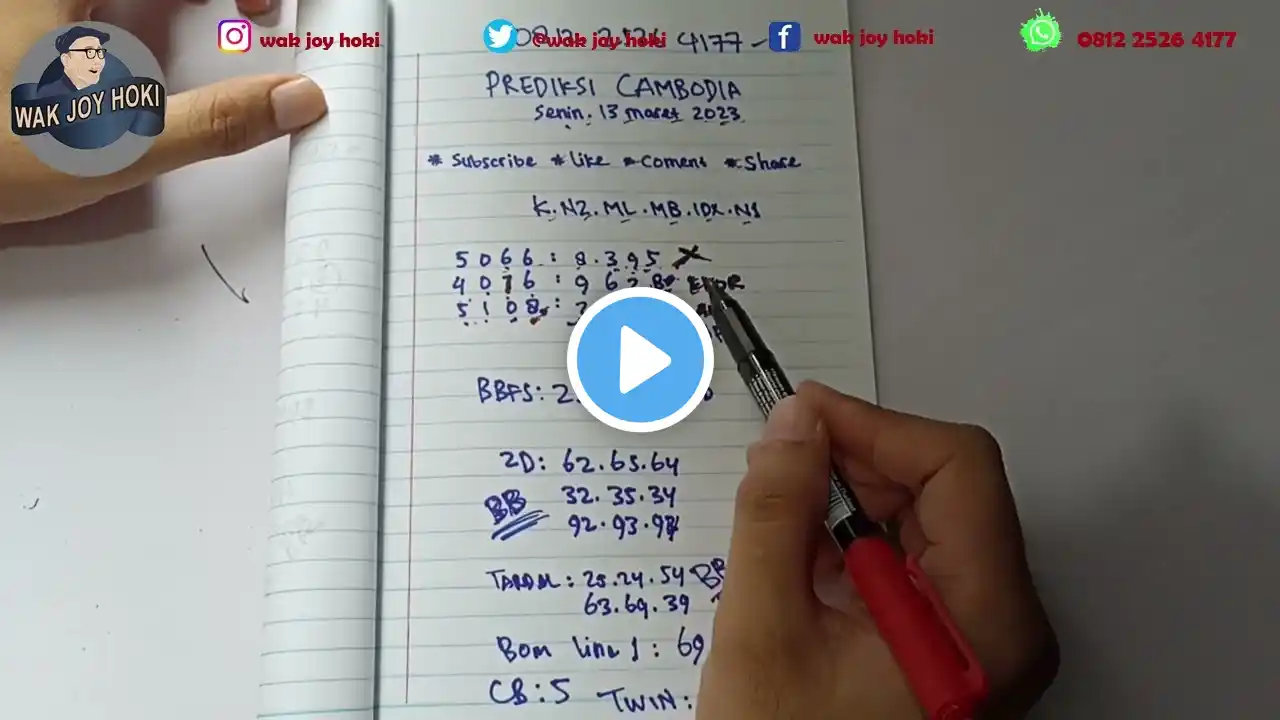 wak joy hoki @wak joy hoki wak joy hoki 0812 2526 4177
WAK JOY HOKI
4177
PREDIKSI CAMBODIA
Senin, 13 maret 2023
* Subscribe * Like * Coment * Share
K.NZ.ML.MB.IDX.N1
5 0 6 6 : 8.395 X
4 0 7 6 : 9 6 2 8
5 1 0 8 :
BBFS: 2
2D: 62.65.64
BB 32.35.34
92.93.94
TARDAL: 25.24.54 BB
63.69.39
Bom Line 1: 69
CB: 5 TWIN: